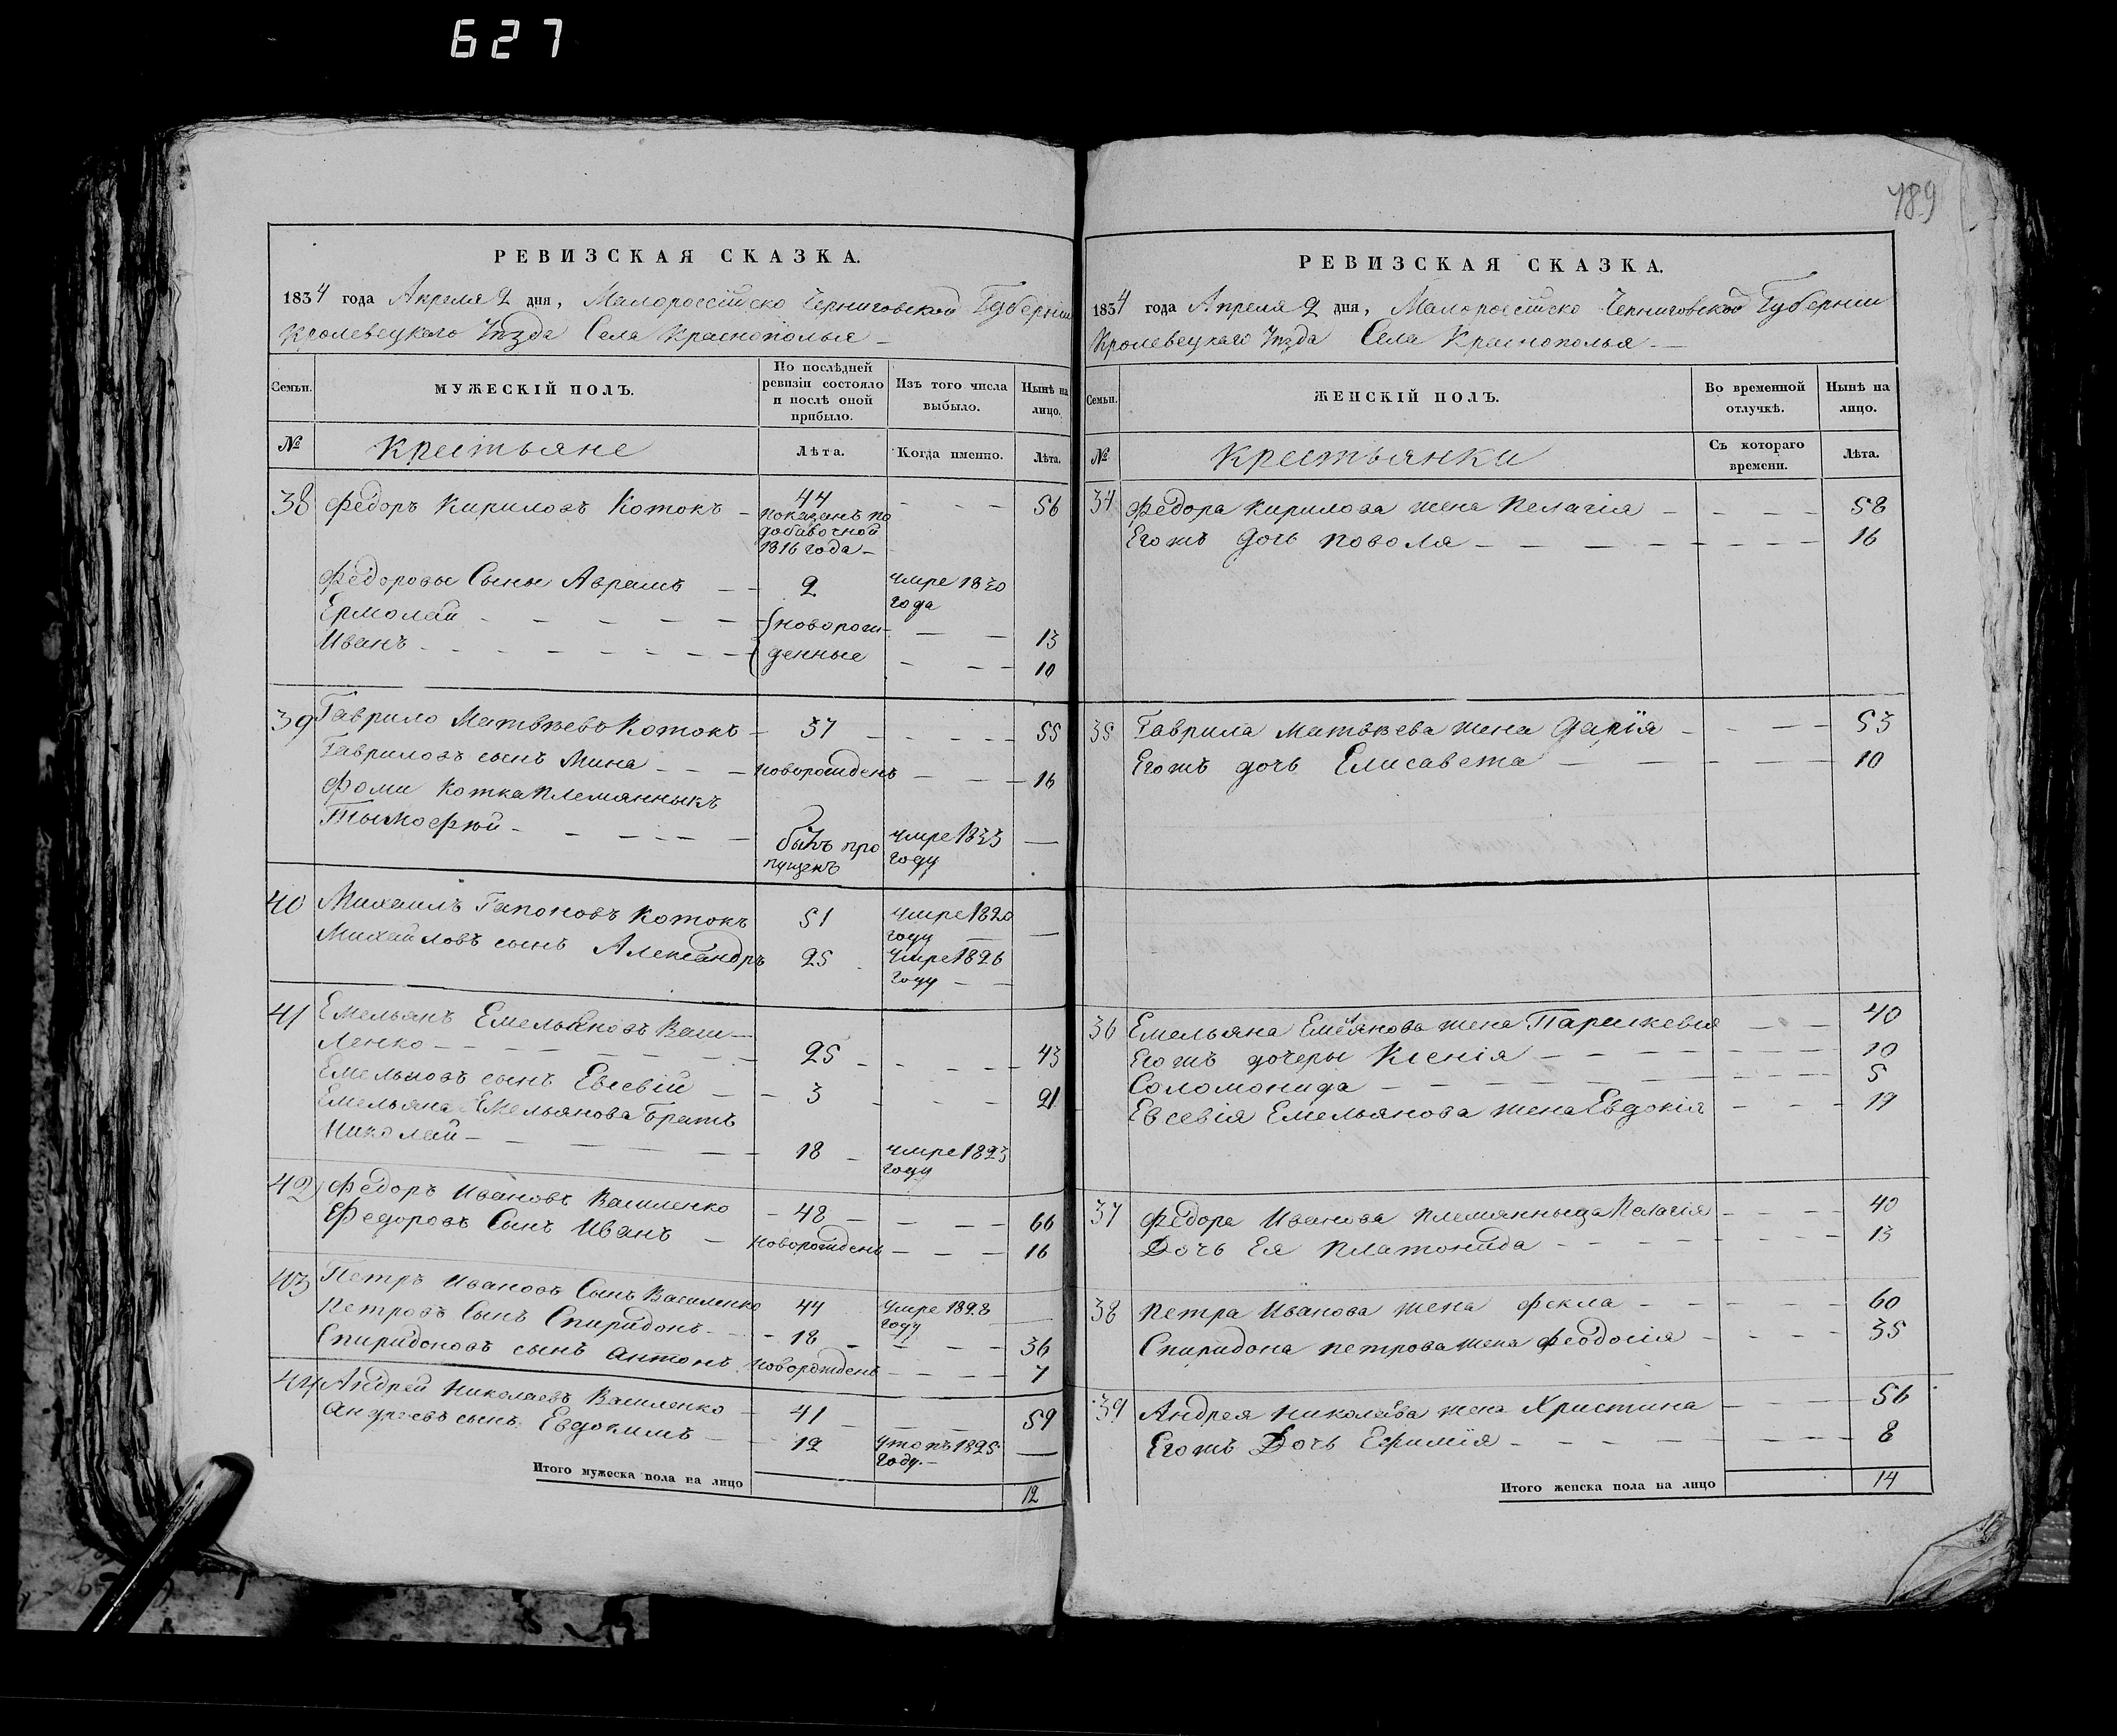 627
789
РЕВИЗСКАЯ СКАЗКА.
1834 года Апреля 2 дня, Малороссійско Черниговской Губерніи
Кролевецкаго Уѣзда Села Краснополья
Семьи. МУЖЕСКІЙ ПОЛЪ. По послѣдней ревизіи состояло и послѣ оной прибыло. Изъ того числа выбыло. Нынѣ на лицо.
№ Крестьяне Лѣта. Когда именно. Лѣта.
38 Федоръ Кириловъ Котокъ 44 56
показанъ по
добавочной
1816 года
Федоровы Сыны Аврамъ 2 умре 1830
года
Ермолай новорож- 13
Иванъ денные 10
39 Гаврило Матвѣевъ Котокъ 37 55
Гавриловъ сынъ Мина новорожденъ 16
Фоми Котка племянныкъ
Тымофѣй былъ про умре 1833
пущенъ году
40 Михаилъ Гапоновъ Котокъ 51 умре 1820
году
Михайловъ сынъ Александръ 25 умре 1826
году
41 Емельянъ Емельяновъ Васи-
ленко 25 43
Емельяновъ сынъ Евсевій 3 21
Емельяна Емельянова братъ
Николай 18 умре 1823
году
42 Федоръ Ивановъ Василенко 48 66
Федоровъ Сынъ Иванъ новорожденъ 16
43 Петръ Ивановъ Сынъ Василенко 44 умре 1828
году
Петровъ Сынъ Спиридонъ 18 36
Спиридоновъ сынъ Антонъ новорожденъ 7
44 Андрей Николаевъ Василенко 41 59
Андреевъ сынъ Евдокимъ 12 утопъ 1825
году.
Итого мужеска пола на лицо 12
РЕВИЗСКАЯ СКАЗКА.
1834 года Апреля 2 дня, Малороссійско Черниговской Губерніи
Кролевецкаго Уѣзда Села Краснополья
Семьи. ЖЕНСКІЙ ПОЛЪ. Во временной отлучкѣ. Нынѣ на лицо.
№ Крестьянки Съ котораго времени. Лѣта.
34 Федора Кирилова жена Пелагія 58
Егожъ дочь Поволя 16
35 Гаврила Матвѣева жена Дарія 53
Егожъ дочь Елисавета 10
36 Емельяна Емелянова жена Параскевія 40
Егожъ дочеры Ксенія 10
Соломонида 5
Евсевія Емельянова жена Евдокія 19
37 Федора Иванова племянныца Пелагія 40
Дочь Ея Платонида 13
38 Петра Иванова жена Фекла 60
Спиридона Петрова жена Феодосія 35
39 Андрея Николаева жена Христина 56
Егожъ Дочь Ефимія 8
Итого женска пола на лицо 14